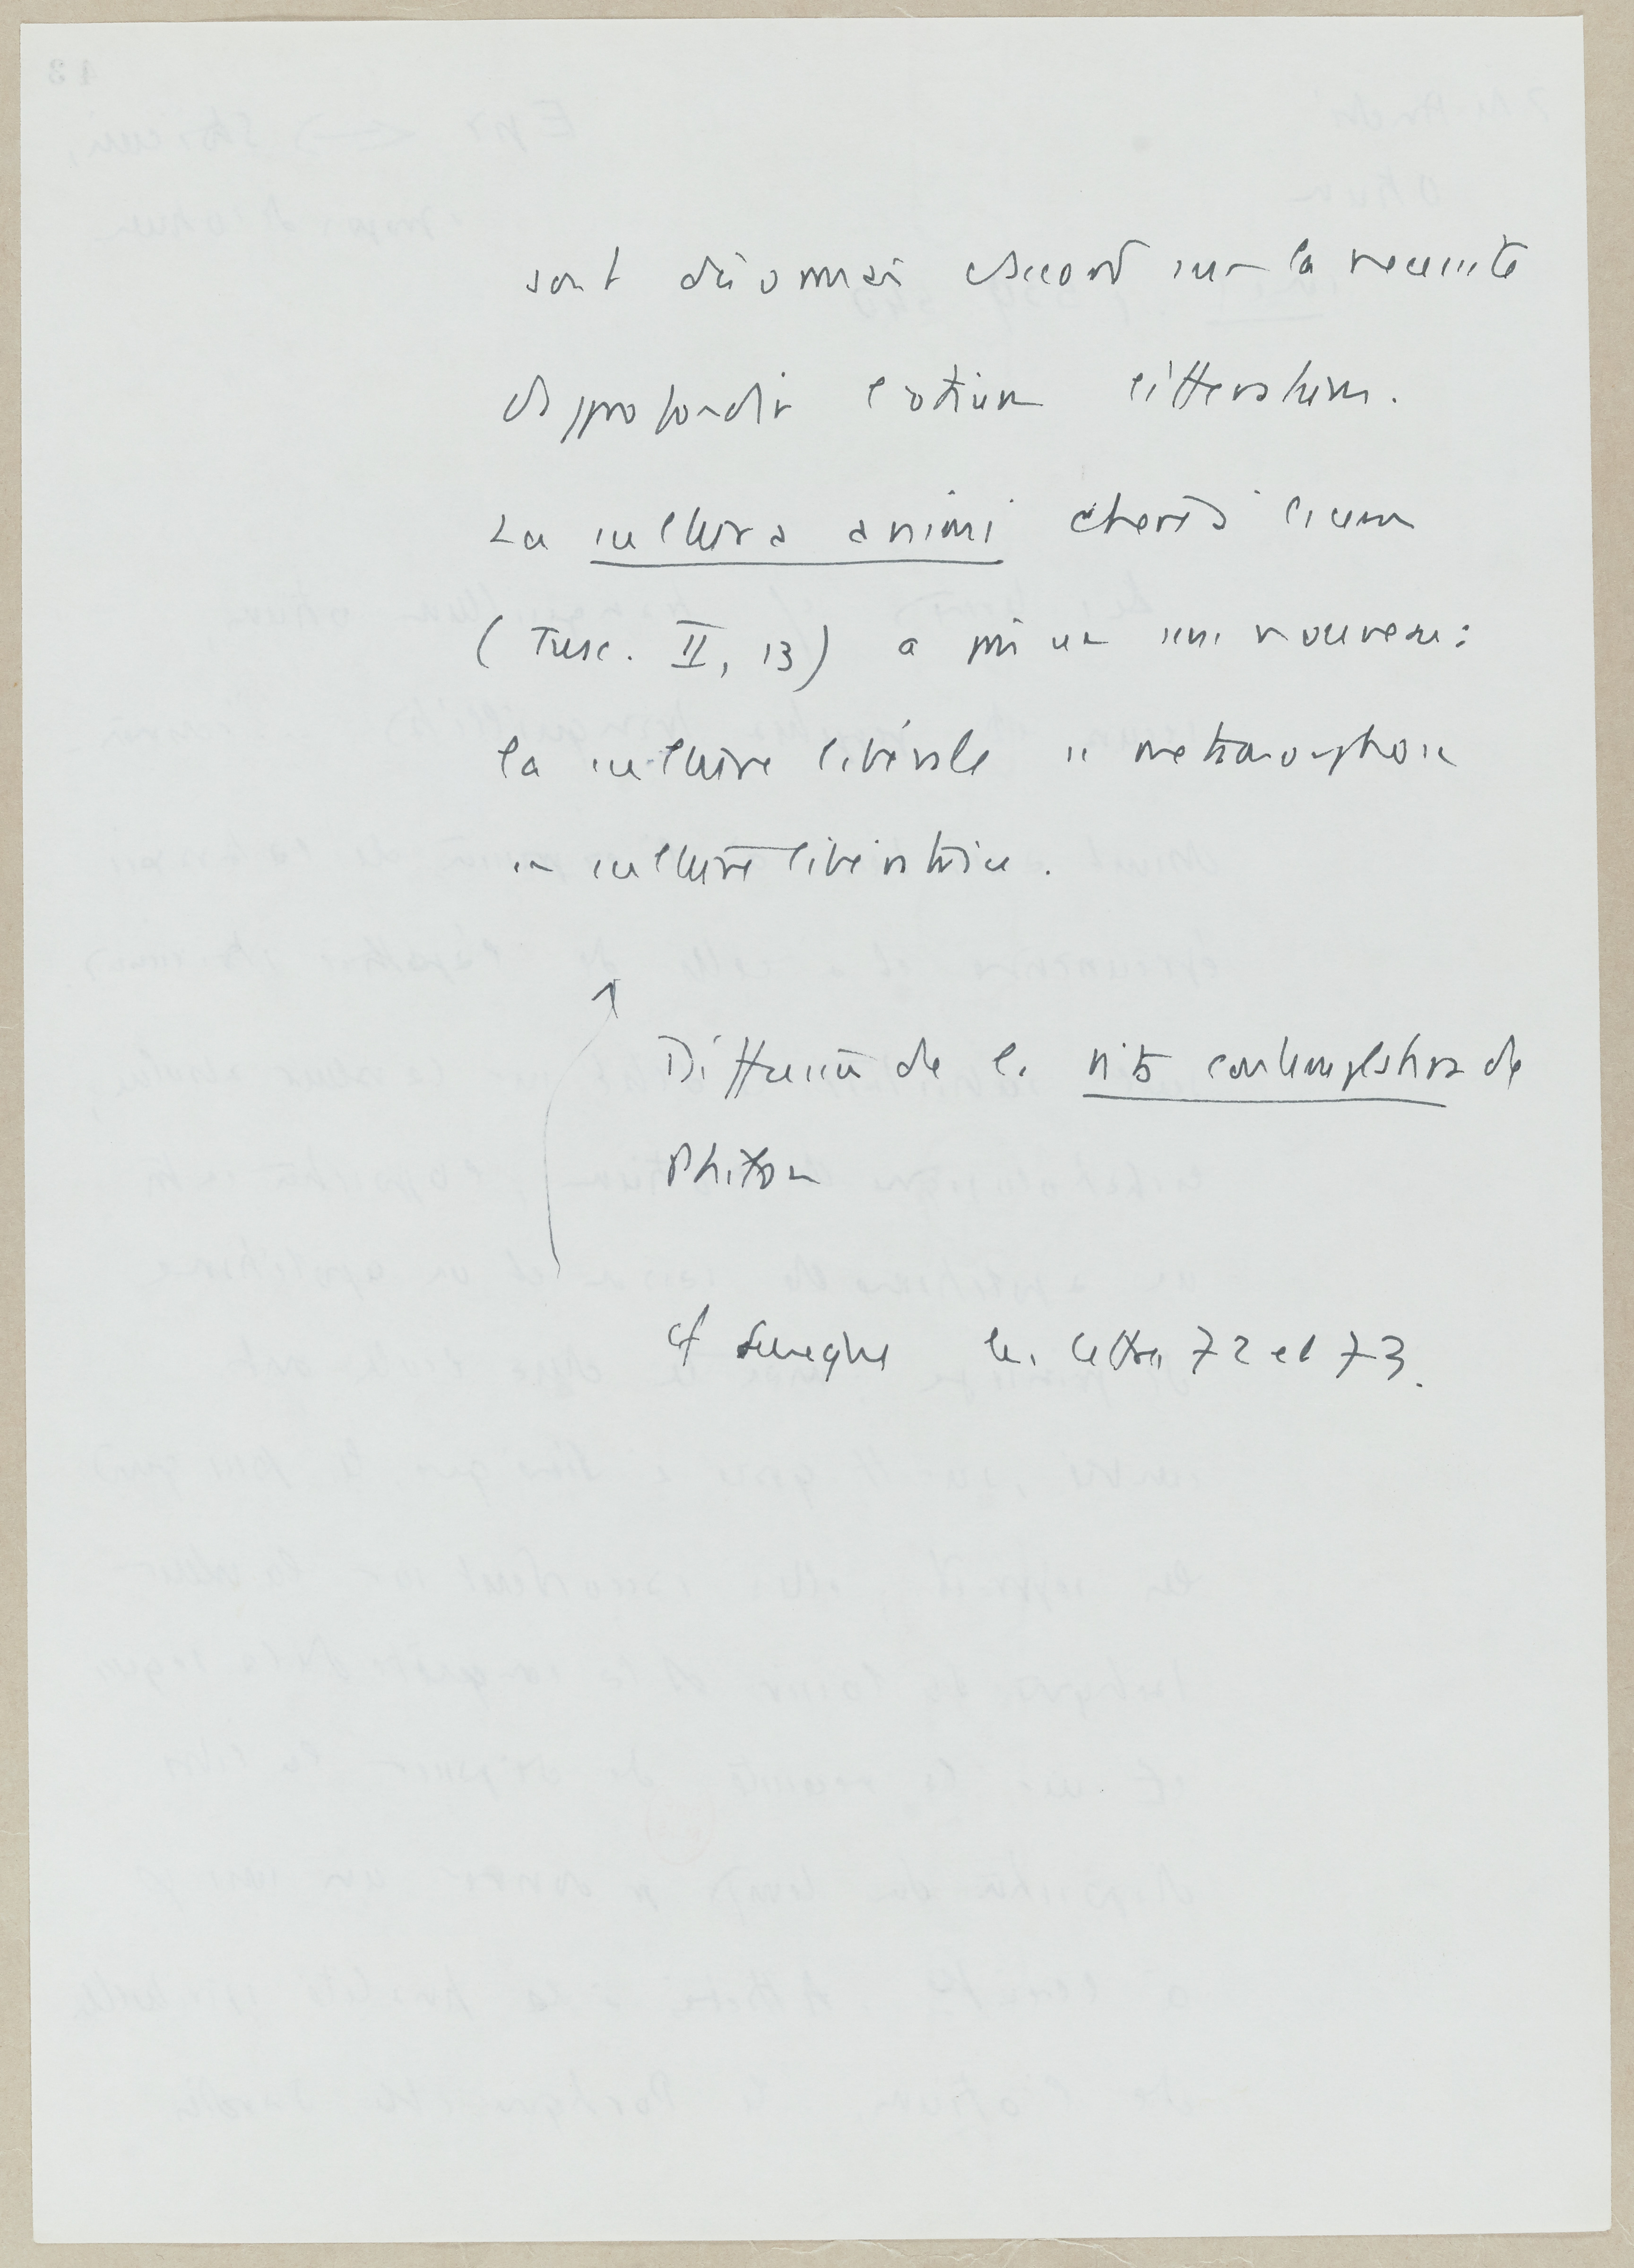 sont désormais d'accord sur la nécessité
d'approfondir l'otium litteratum.
La cultura animi chère à Cicéron
(Tusc. II, 13) a pris un sens nouveau :
la culture libérale se métamorphose
en culture libératrice.
Différence de la vita contemplativa de
Philon
cf Sénèque les lettres 72 et 73.